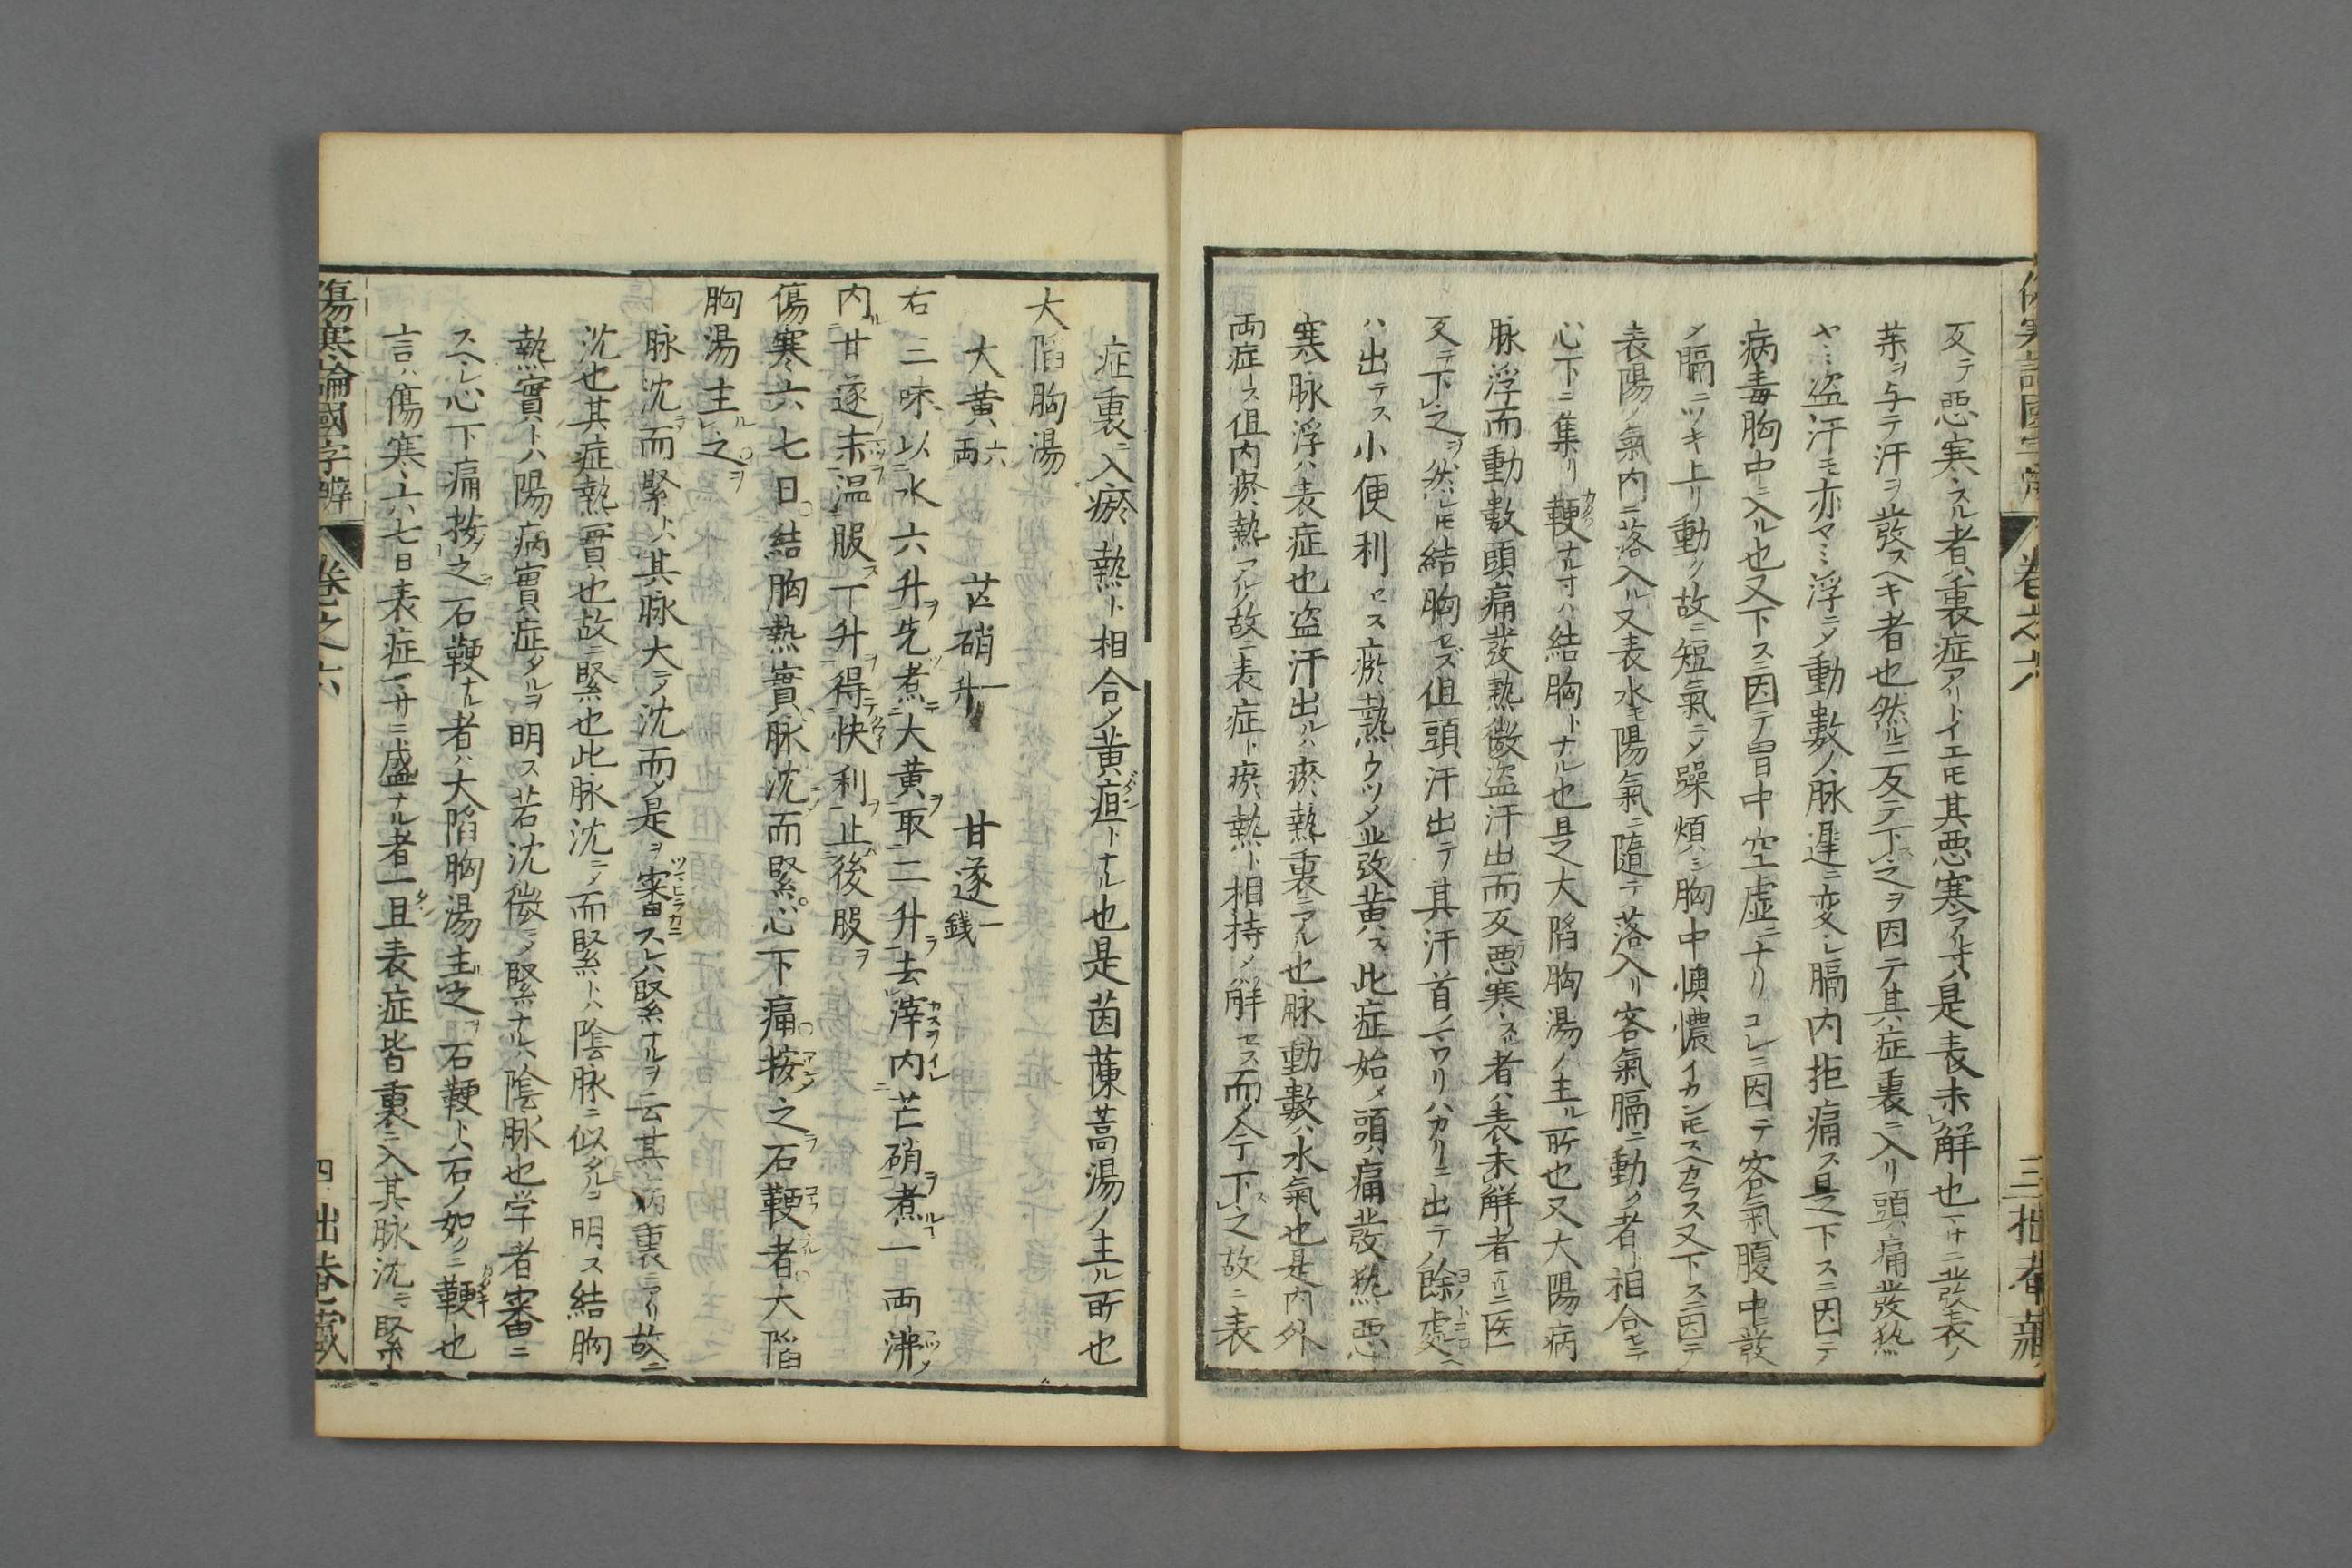 傷寒論國字辨 卷之六 三 拙菴藏
反テ悪寒スル者ハ裏症アリトイエ𪜈其悪寒アル寸ハ是表未解也マサニ発表ノ
茱ヲ与テ汗ヲ發スヘキ者也然ルニ反テ下之ヲ因テ其症裏ニ入リ頭痛發熱
ヤミ盗汗モ亦ヤミ浮ニメ動數ノ脉遲ニ変レ膈内拒痛ス是下スニ因テ
病毒胸中ニ入ル也又下スニ因テ胃中空虚ニナリコレニ因テ客氣腹中ニ發
メ膈ニツキ上リ動ク故ニ短氣ニメ躁煩シ胸中懊憹イカン𪜈スヘカラス又下スニ因テ
表陽ノ氣内ニ落入ル又表水モ陽氣ニ隨テ落入リ客氣膈ニ動ク者ト相合モテ
心下ニ集リ鞕ナル寸ハ結胸トナル也是大陷胸湯ノ主ル所也又大陽病
脉浮而動數頭痛發熱微盗汗出而反悪寒スル者ハ表未解者ナルニ医
反テ下之ヲ然レ𪜈結胸セズ但頭汗出テ其汗首ノマワリハカリニ出テ餘處ヘ
ハ出テス小便利セス瘀熱ウツメ発黄ス此症始メ頭痛發熱悪
寒脉浮ハ表症也盗汗出ルハ瘀熱裏ニアル也脉動數ハ水氣也是内外
両症ス但内瘀熱アル故ニ表症ト瘀熱ト相持メ解セス而メ今下之故ニ表
症裏ニ入瘀熱ト相合ノ黄疸トナル也是茵蔯蒿湯ノ主ル所也
大陷胸湯
大黄六両 芒硝一升 甘遂一銭
右三味以水六升先煮大黄取二升去滓内芒硝煮一両沸
内甘遂末温服一升得快利止後服
傷寒六七日結胸熱實脉沈而緊心下痛按之石鞕者大陷
胸湯主之
脉沈而緊トハ其脉大ニメ沈而メ是ヲ審スレハ緊ナルヲ云其病裏ニアリ故ニ
沈也其症熱實也故ニ緊也此脉沈ニメ而緊トハ陰脉ニ似タルヲ明ス結胸
熱實トハ陽病實症タルヲ明ス若沈微ニメ緊ナルハ陰脉也学者審ニ
スヘシ心下痛按之石鞕ナル者ハ大陷胸湯主之石鞕トハ石ノ如クニ鞕也
言ハ傷寒六七日表症マサニ盛ナル者一旦表症皆裏ニ入其脉沈ニメ緊
傷寒論國字辨 卷之六 四 拙菴藏